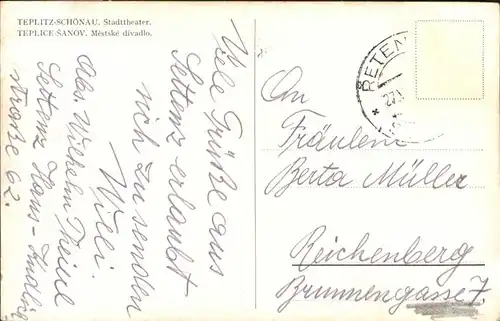 TEPLITZ-SCHÖNAU. Stadttheater.
TEPLICE-ŠANOV. Městské divadlo.
Viele Grüße aus
Settenz erlaubt
sich zu senden
Willi.
Ab. Wilhelm
Settenz Hans-Kudlich
straße 62.
ŘETEN
An
Fräulein
Berta Müller
Reichenberg
Brunnengasse 7.